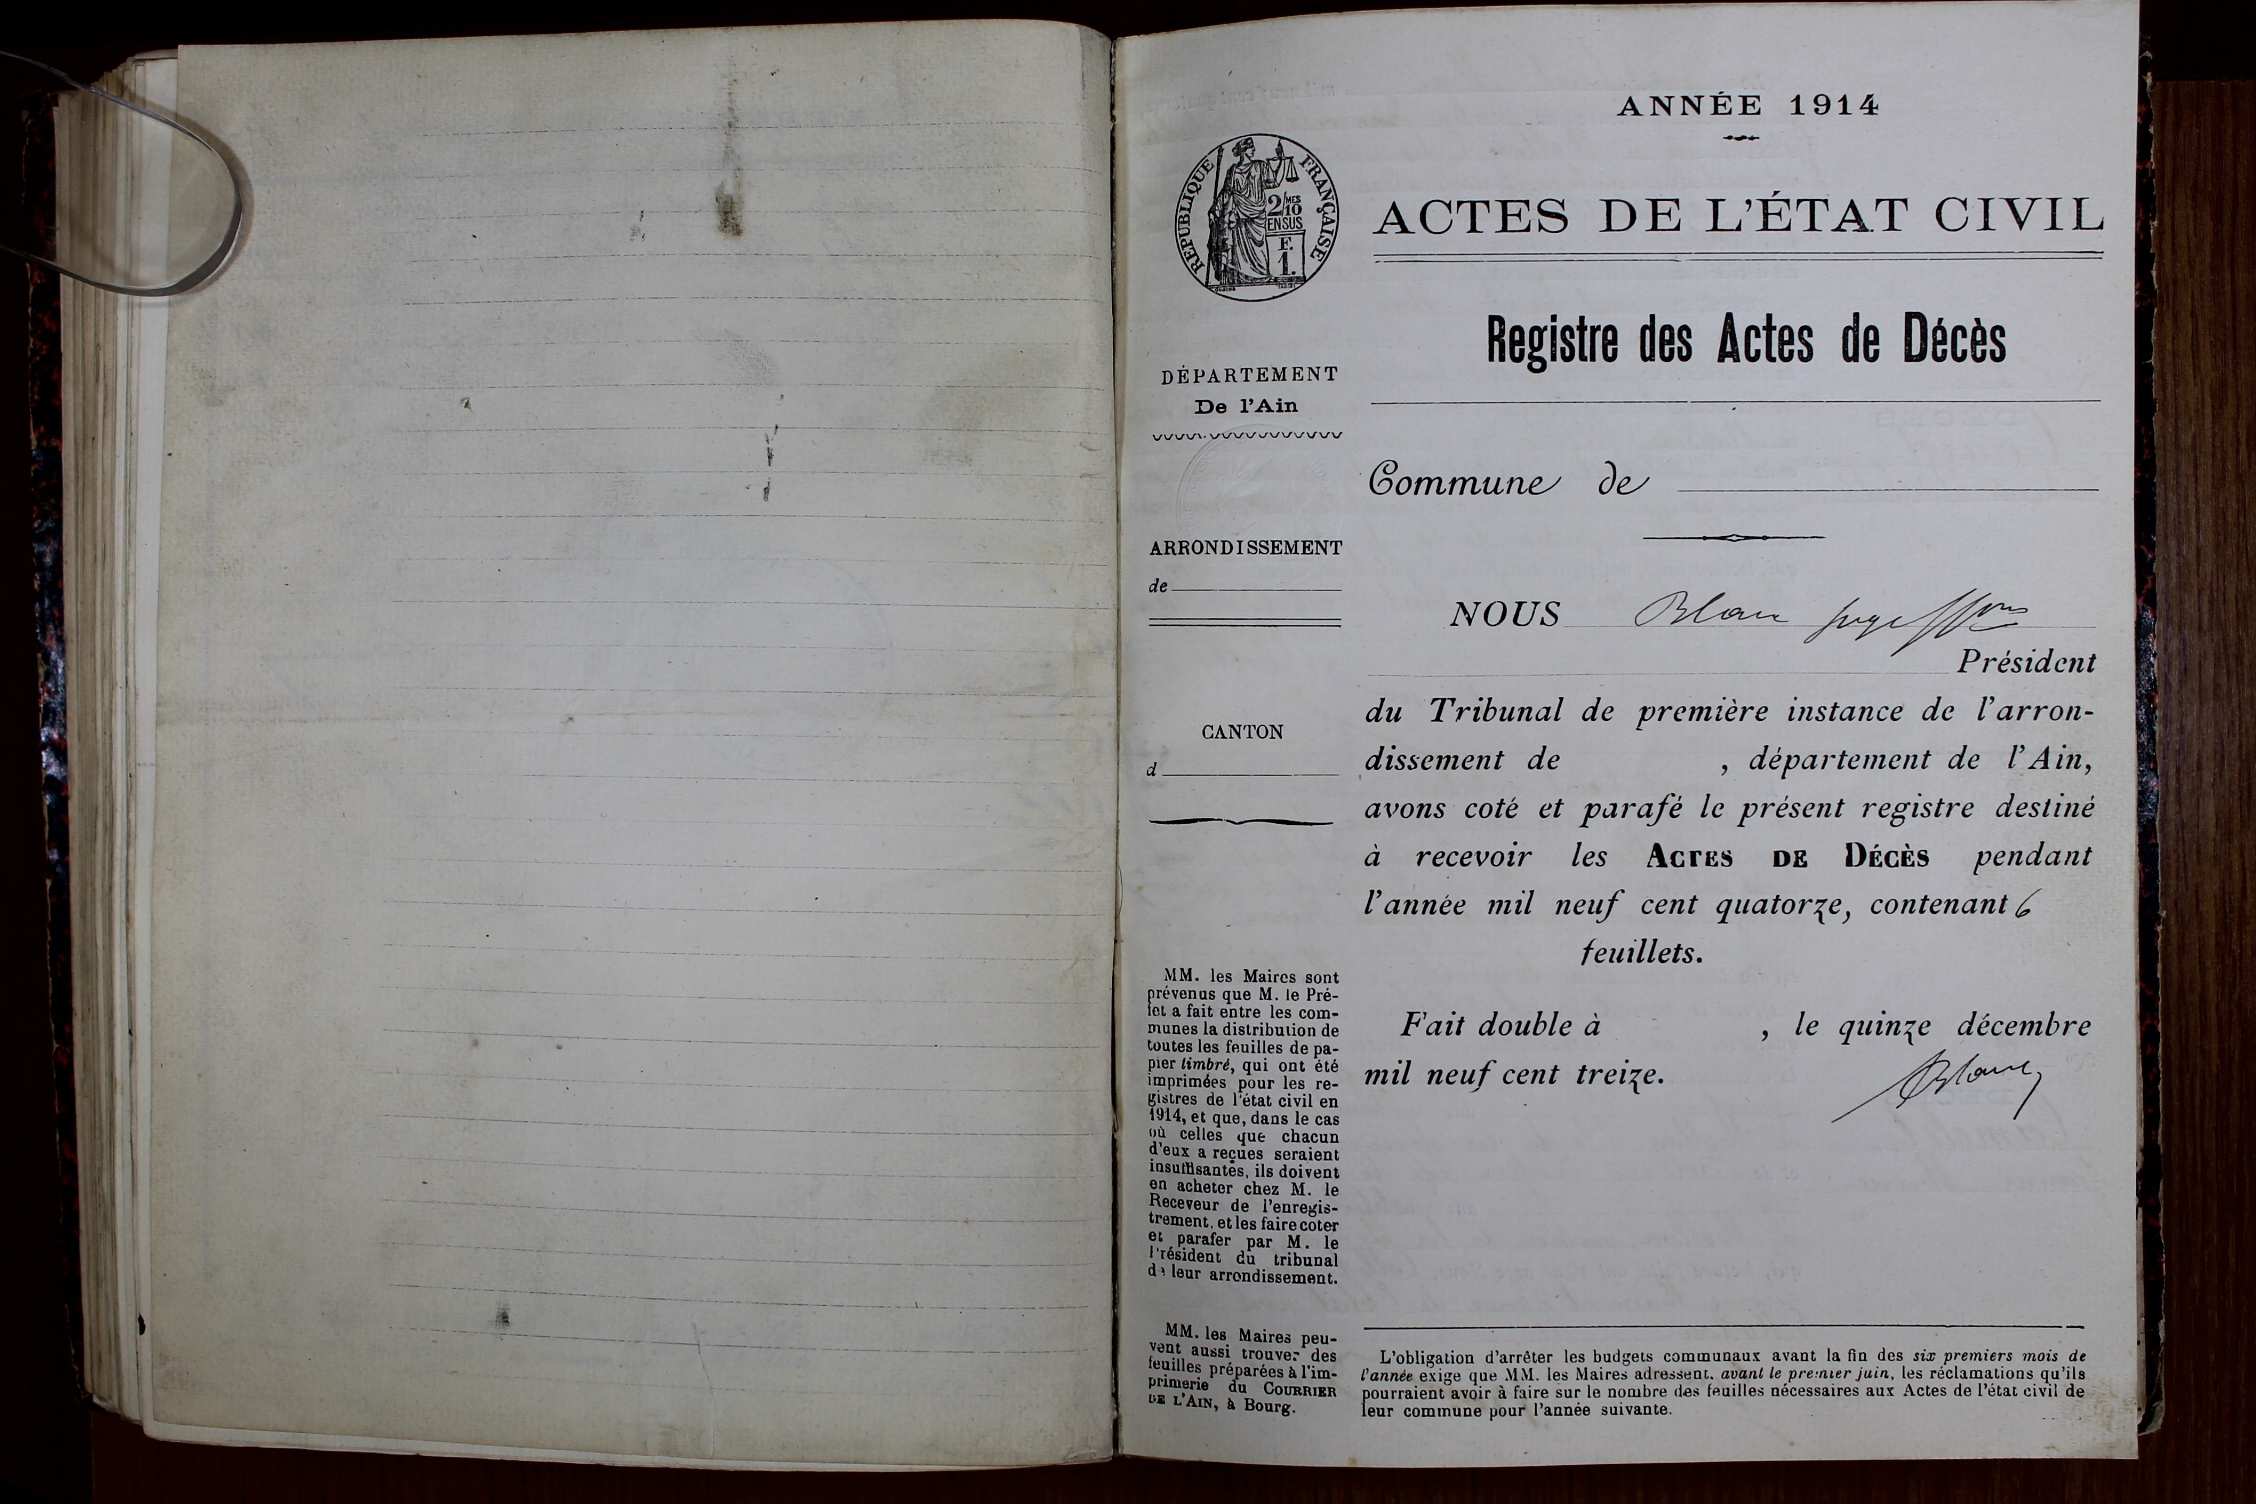 ANNÉE 1914
ACTES DE L'ÉTAT CIVIL
Registre des Actes de Décès
Commune de
NOUS Blanc
Président
du Tribunal de première instance de l'arron-
dissement de , département de l'Ain,
avons coté et parafé le présent registre destiné
à recevoir les ACTES DE DÉCÈS pendant
l'année mil neuf cent quatorze, contenant 6
feuillets.
Fait double à , le quinze décembre
mil neuf cent treize.
Blanc
L'obligation d'arrêter les budgets communaux avant la fin des six premiers mois de
l'année exige que MM. les Maires adressent, avant le premier juin, les réclamations qu'ils
pourraient avoir à faire sur le nombre des feuilles nécessaires aux Actes de l'état civil de
leur commune pour l'année suivante.
RÉPUBLIQUE FRANÇAISE
2/MES
10
EN SUS
F.
1.
DÉPARTEMENT
De l'Ain
ARRONDISSEMENT
de
CANTON
d
MM. les Maires sont
prévenus que M. le Pré-
fet a fait entre les com-
munes la distribution de
toutes les feuilles de pa-
pier timbré, qui ont été
imprimées pour les re-
gistres de l'état civil en
1914, et que, dans le cas
où celles que chacun
d'eux a reçues seraient
insuffisantes, ils doivent
en acheter chez M. le
Receveur de l'enregis-
trement, et les faire coter
et parafer par M. le
Président du tribunal
de leur arrondissement.
MM. les Maires peu-
vent aussi trouver des
feuilles préparées à l'im-
primerie du COURRIER
DE L'AIN, à Bourg.